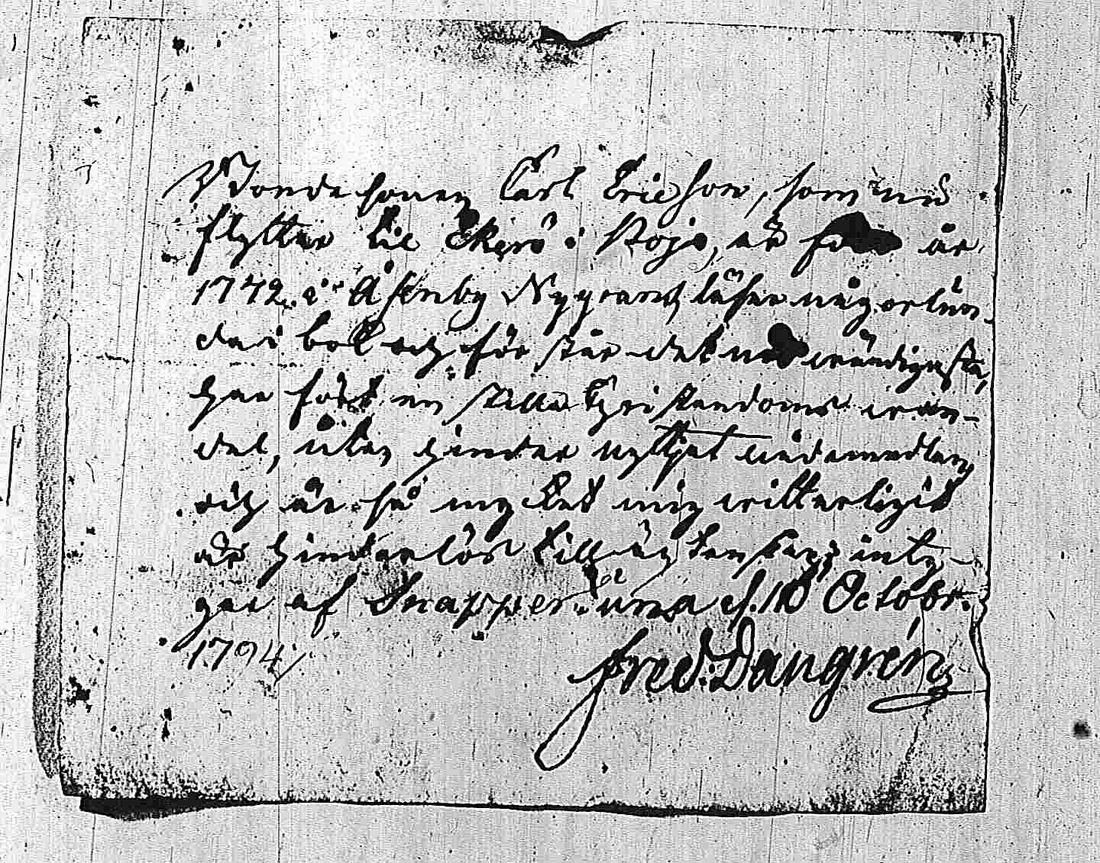 Bondesonen Carl Ericson, som nu
flytter til Ökerö i Rojo, är född år
1772 i Åsenby Nygrans, läser någorlun-
da i bok och förstår det nödvändigasta,
har fört en stilla Christendoms wan-
del, utan hinder nyttjat nådemedlen
och är så mycket mig witterligit
är hinderlös till äktenskap; intÿ-
gar af Snappertuna d. 18 Octobr.
1794/
Fred: Dangrén